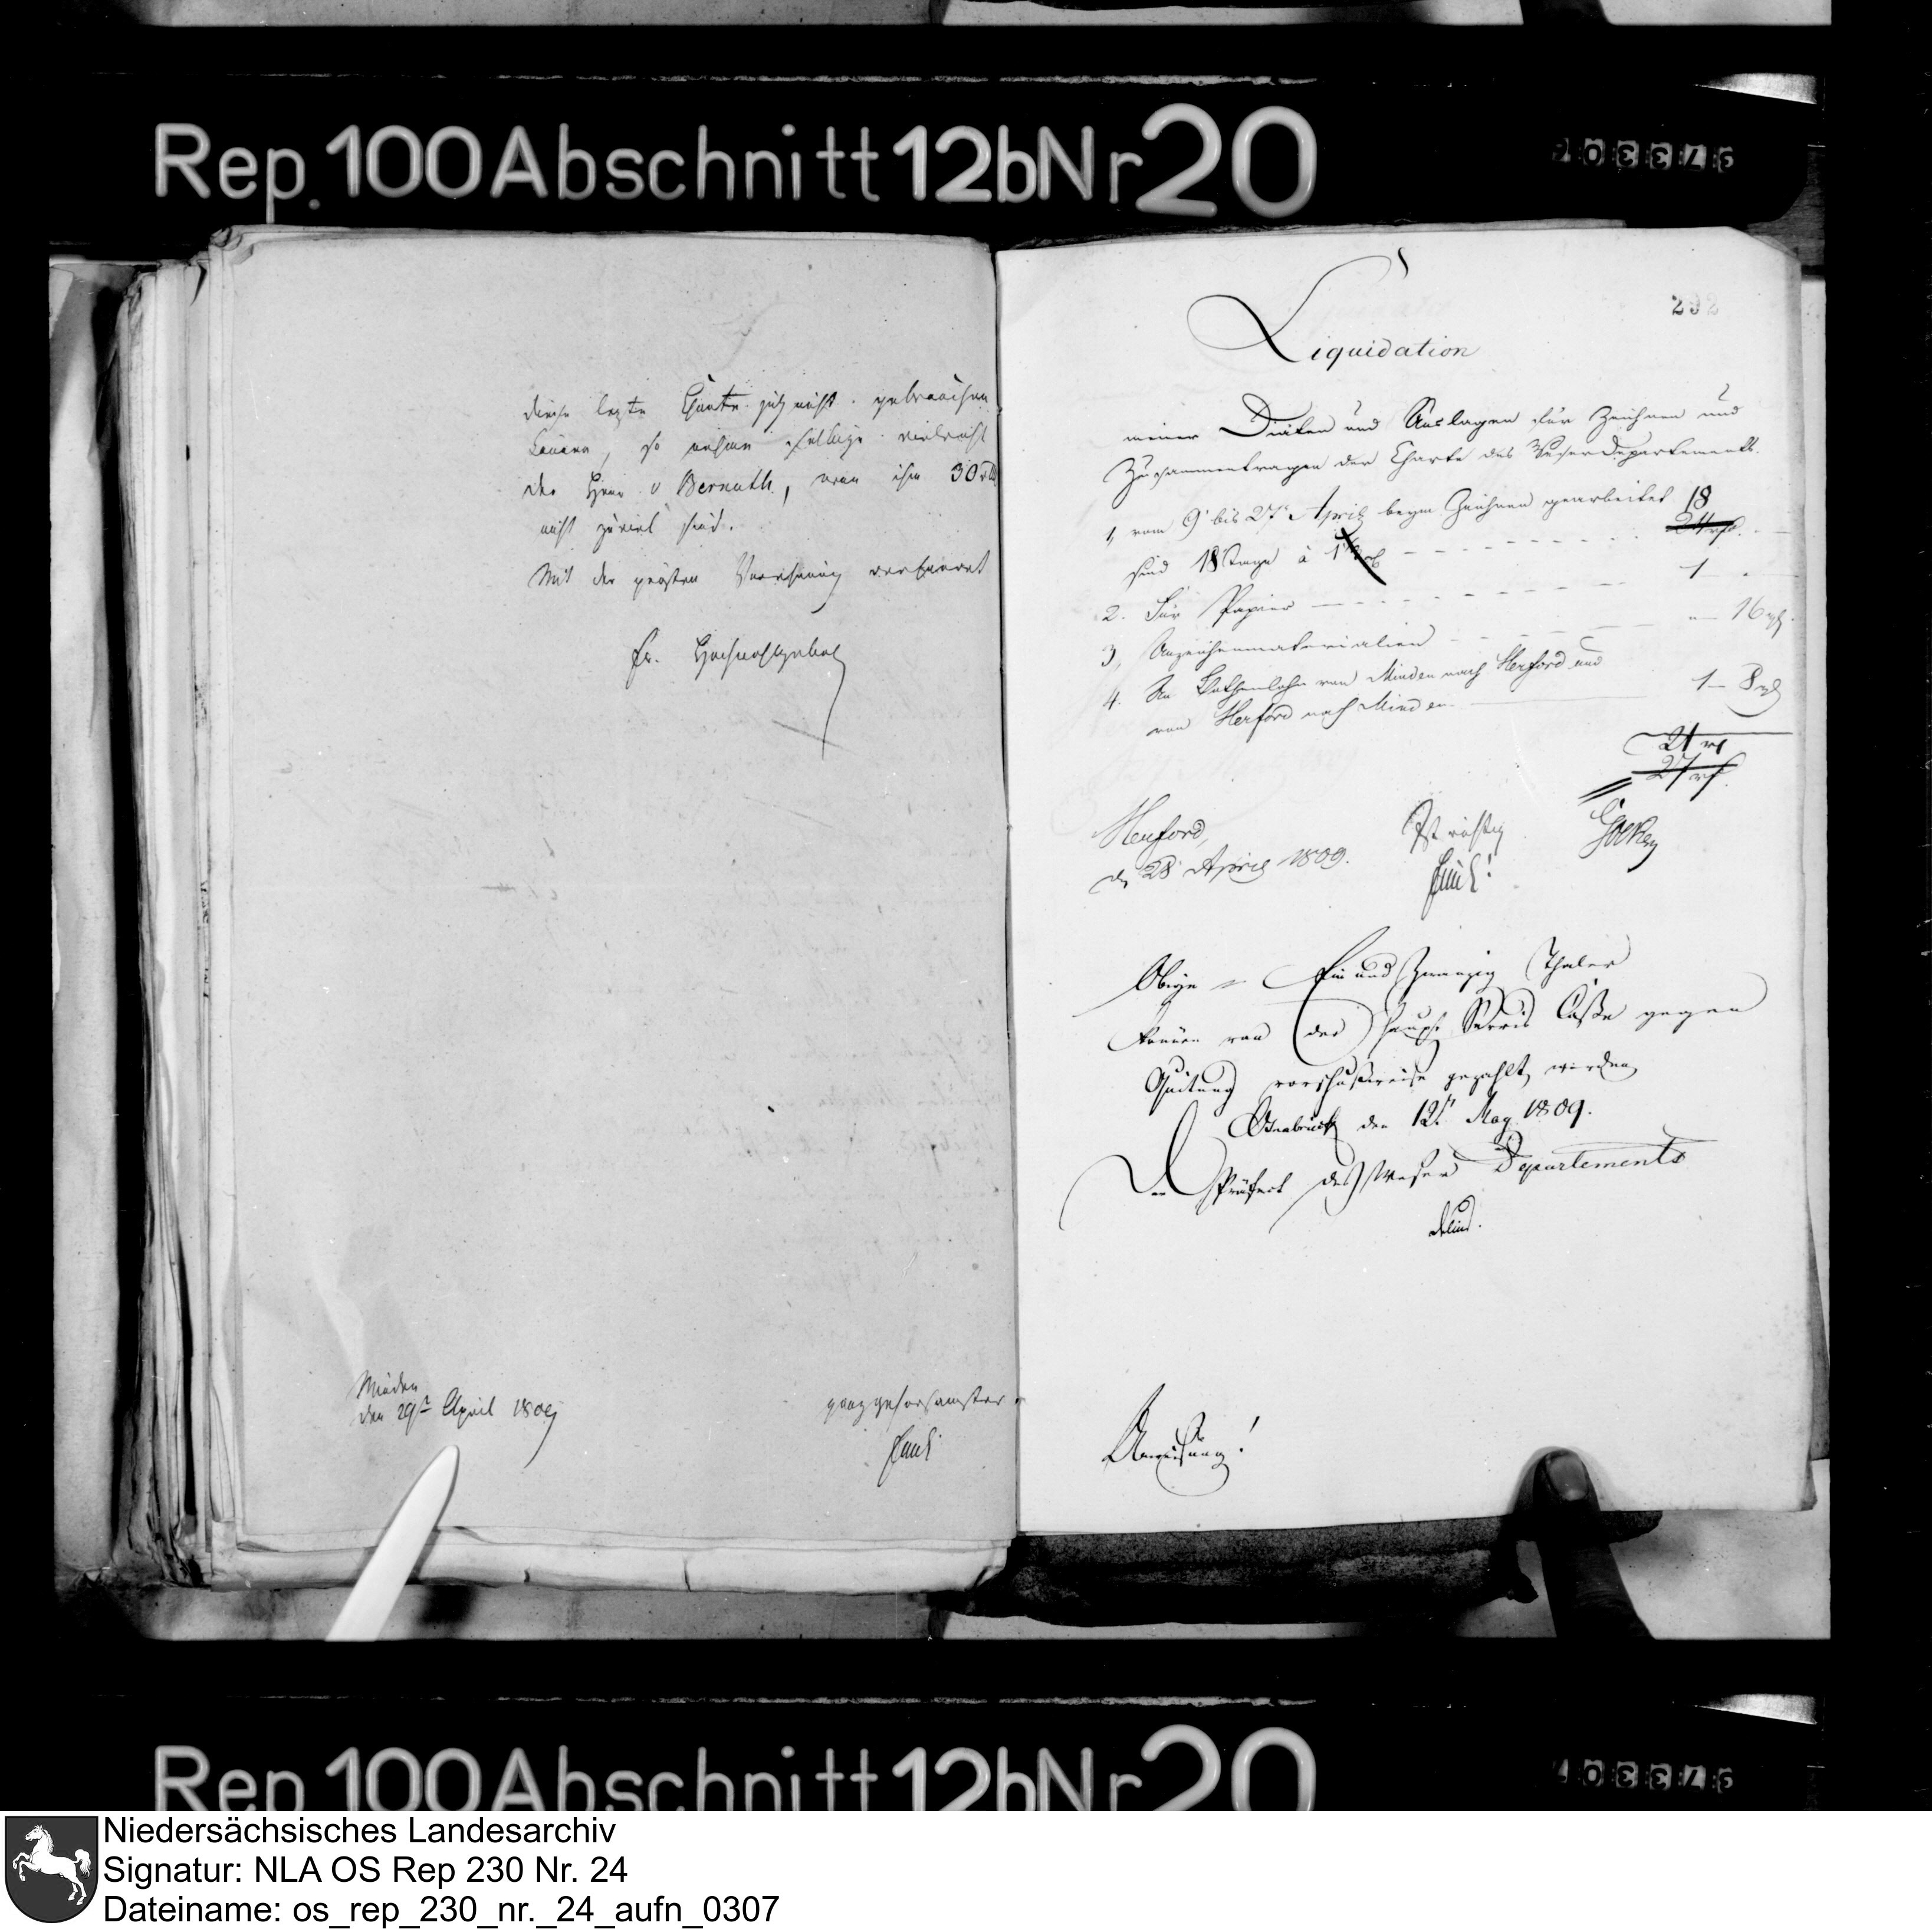 Rep. 100 Abschnitt 12b Nr 20
diese lezte Charte gleich nicht gebrauchen
können, so nehmen vielleicht
der Herr v Bernuth, wenn ihm 30 rtl
nicht zuviel sind.
Mit der grösten Verehrung verharret
Ew. Hochwohlgebohr
Minden
den 29ten April 1809
ganz gehorsamster
292
Liquidation
meiner Diäten und Auslagen für Zeichnen und
Zusammentragen der Charte des Weserdepartements.
1, vom 9t bis 27t April beym Zeichnen gearbeitet 18
sind 18 Tage à 24 rth.
2. Für Papier 1
3, Anzeichenmaterialien 16 ggl.
4. An Bothenlohn von Minden nach Herford und
von Herford nach Minden 1 8 ggl
21 rth
27 rth.
Herford,
den 28t April 1809.
Ist richtig
Obige Ein und Zwanzig Thaler
können von der Haupt Servis Casse gegen
Quitung vorschußweise gezahlt werden
Osnabrück den 12t May 1809.
Der Präfect des Weser Departements
Anweisung!
Rep. 100 Abschnitt 12b Nr 20
Niedersächsisches Landesarchiv
Signatur: NLA OS Rep 230 Nr. 24
Dateiname: os_rep_230_nr._24_aufn_0307